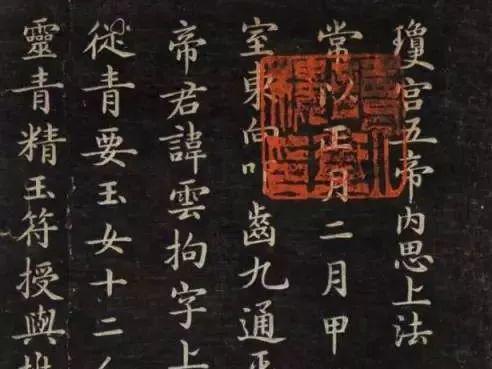 瓊宮五帝內思上法
常以正月二月甲
室東向叩齒九通平
帝君諱雲拘字上
從青要玉女十二人
靈青精玉符授與